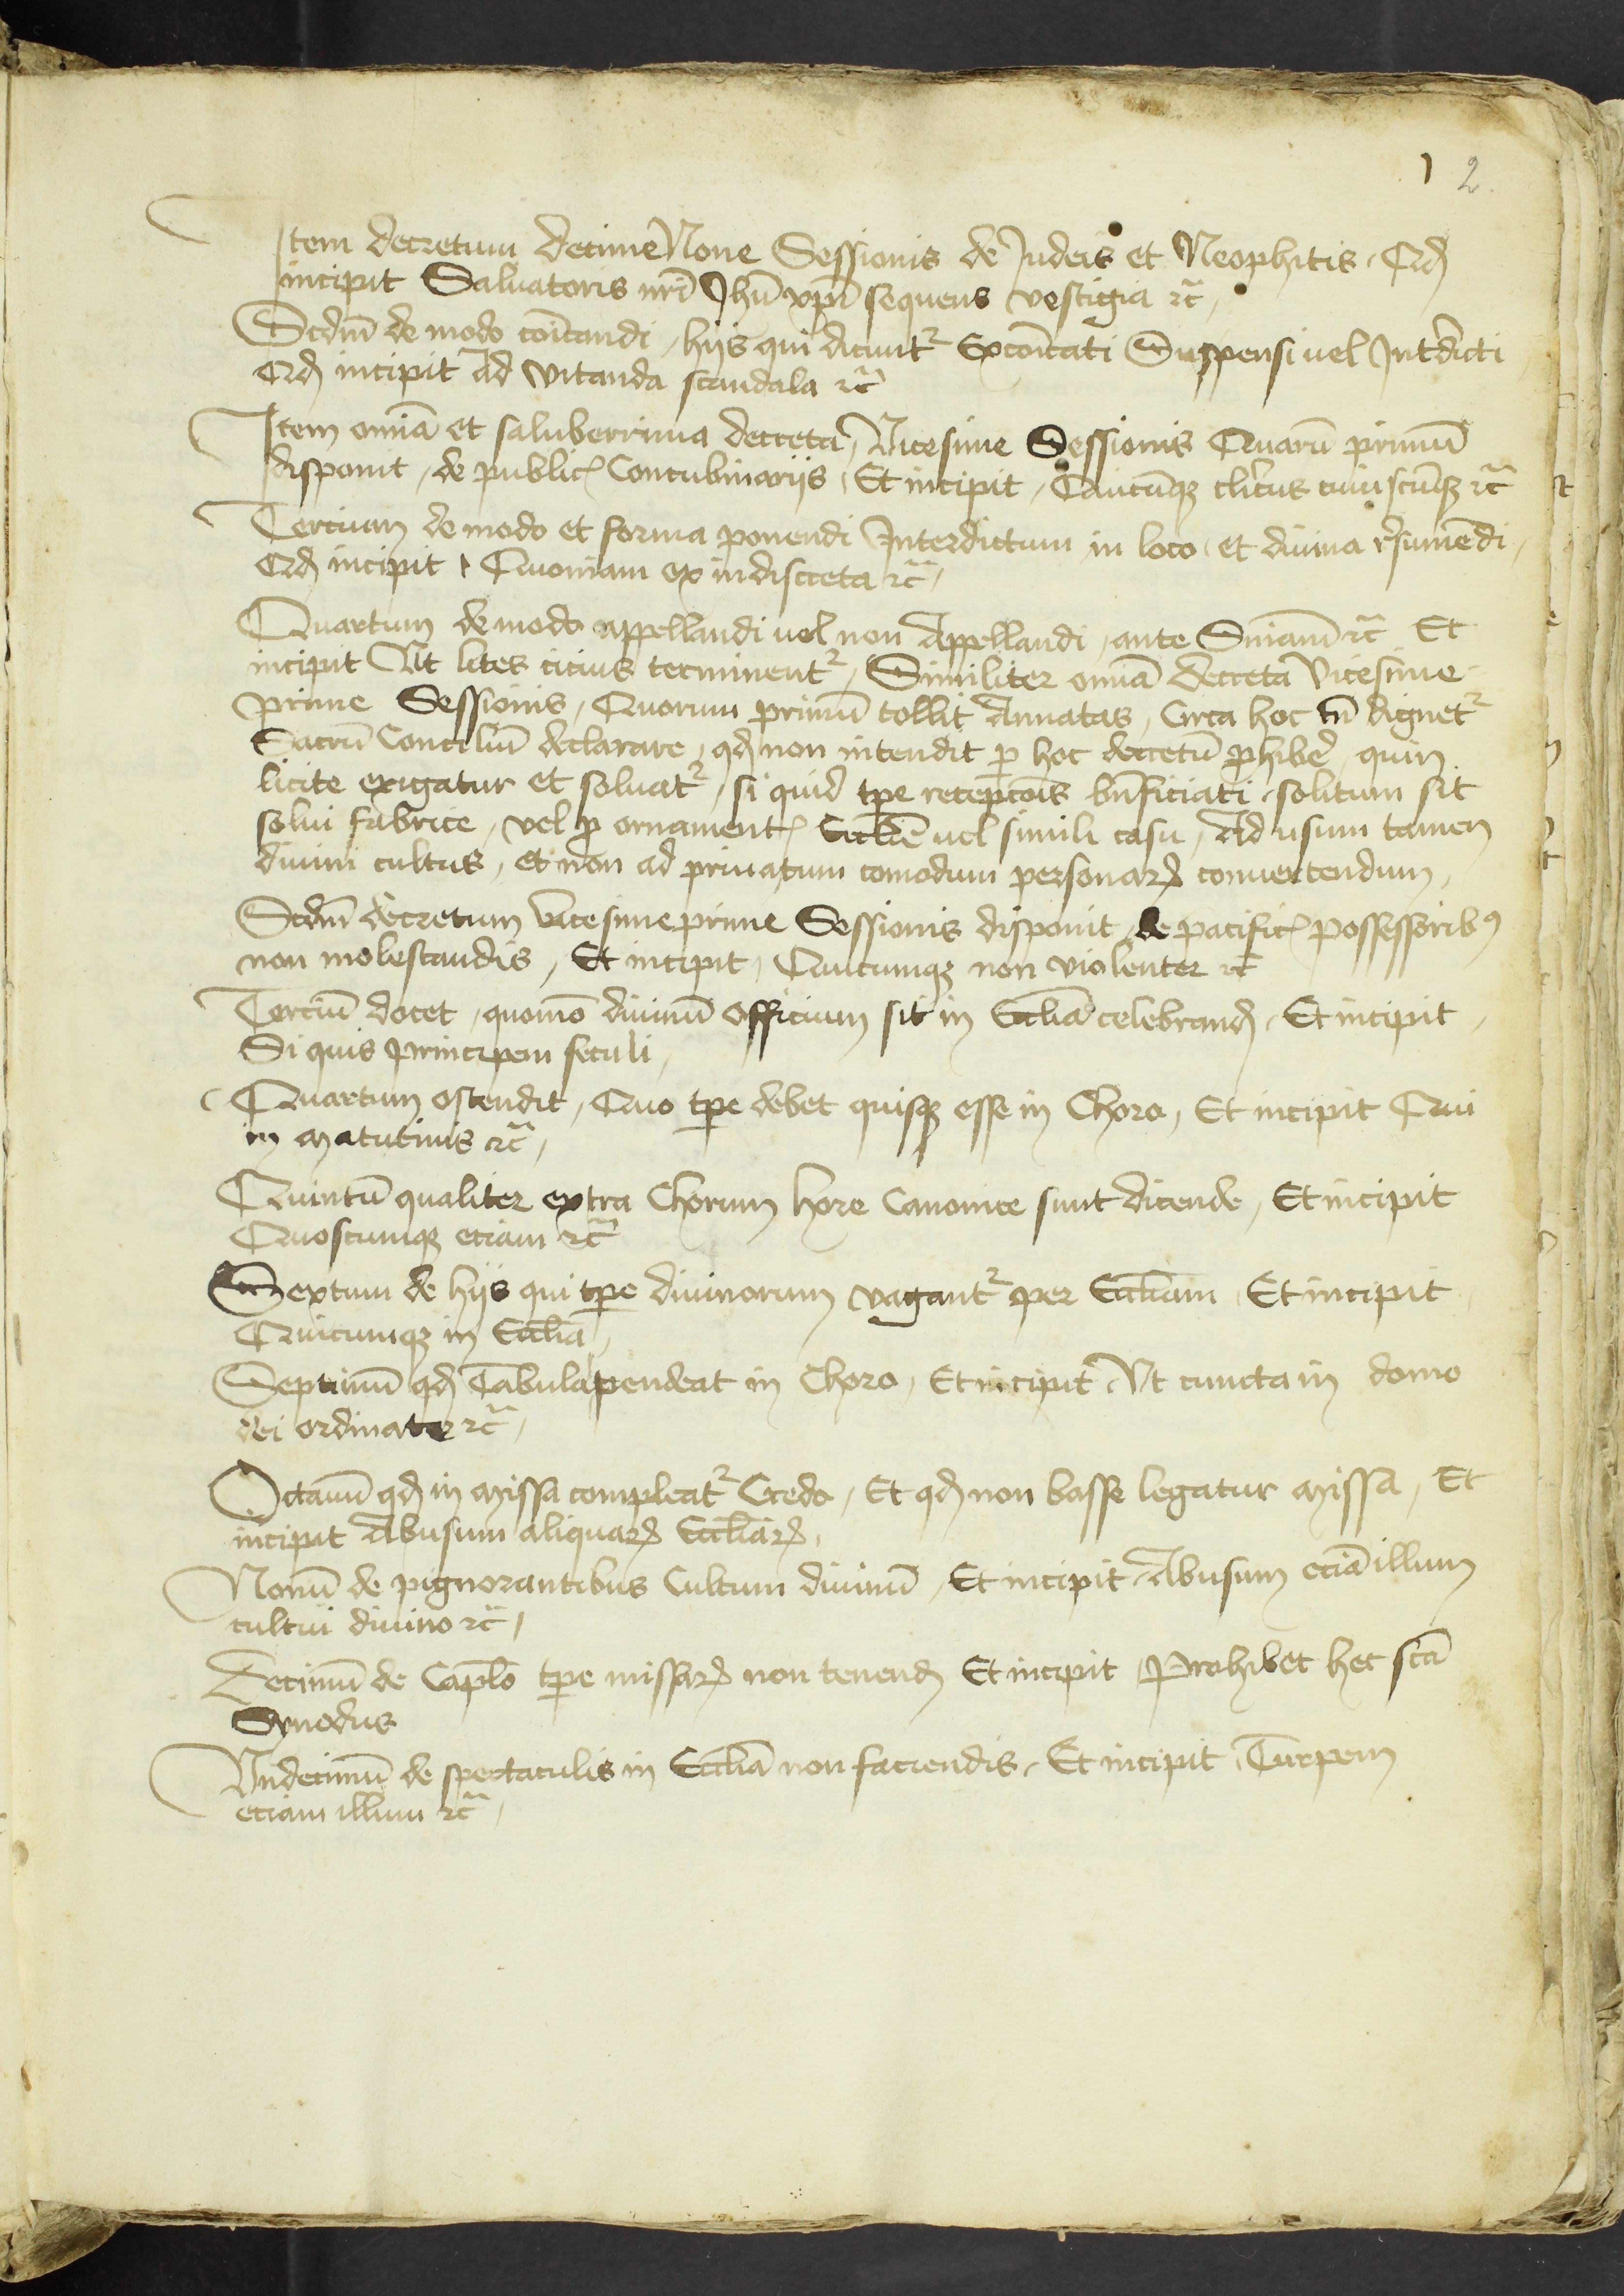 1 2
Item decretum decime None Sessionis de Judeis et Neophitis, Qd
incipit Saluatoris nri Jhu xpi sequens vestigia rc,
Scdm de modo coicandi, hijs qui dicunt Excoicati Suspensi uel Interdicti
Qd incipit Ad vitanda scandala rc
Item omia et saluberrima decreta, Vicesime Sessionis Quaru primu
disponit, de public Concubinarijs, Et incipit, Quicuqz clicus cuiuscuqz rc
Tercium de modo et forma ponendi Interdictum in loco, et diuina resumedi,
Qd incipit, Quoniam ex indiscreta rc,
Quartum de modo appellandi uel non Appellandi, ante Sniam rc Et
incipit Ut lites cicius terminent, Similiter omia decreta Vicesime
prime Sessionis, Quorum primu tollit Annatas, Circa hoc tn dignet
Sacru Conciliu declarare, qd non intendit p hoc decretu phibe, quin
licite exigatur et soluat, si quid tpe recepcois bnficiati, solitum sit
solui fabrice, vel p ornament Ecclie uel simili casu, Ad usum tamen
diuini cultus, et non ad priuatum comodum personar conuertendum,
Scdm decretum vicesime prime Sessionis disponit, de pacific possessorib9
non molestandis, Et incipit, Quicumqz non violenter rc
Terciu docet, quomo diuinu officium sit in Ecclia celebrand, Et incipit,
Si quis principem seculi,
Quartum ostendit, Quo tpe debet quisqz esse in Choro, Et incipit Qui
in matutinis rc,
Quintu qualiter extra Chorum hore Canonice sunt dicende, Et incipit
Quoscumqz eciam rc
Sextum de hijs qui tpe diuinorum vagant per Eccliam, Et incipit,
Quicumqz in Ecclia,
Septimu qd Tabula pendeat in Choro, Et incipit, Ut cuncta in domo
dei ordinate rc,
Octauu qd in missa compleat Credo, Et qd non basse legatur missa, Et
incipit Abusum aliquar Eccliar,
Nonu de pignorantibus Cultum diuinu, Et incipit, Abusum ecia illum
cultui diuino rc,
Decimu de Caplo tpe missar non tenend Et incipit, Prohibet hec sca
Synodus
Undecimu de spectaculis in Ecclia non faciendis, Et incipit, Turpem
eciam illum rc,